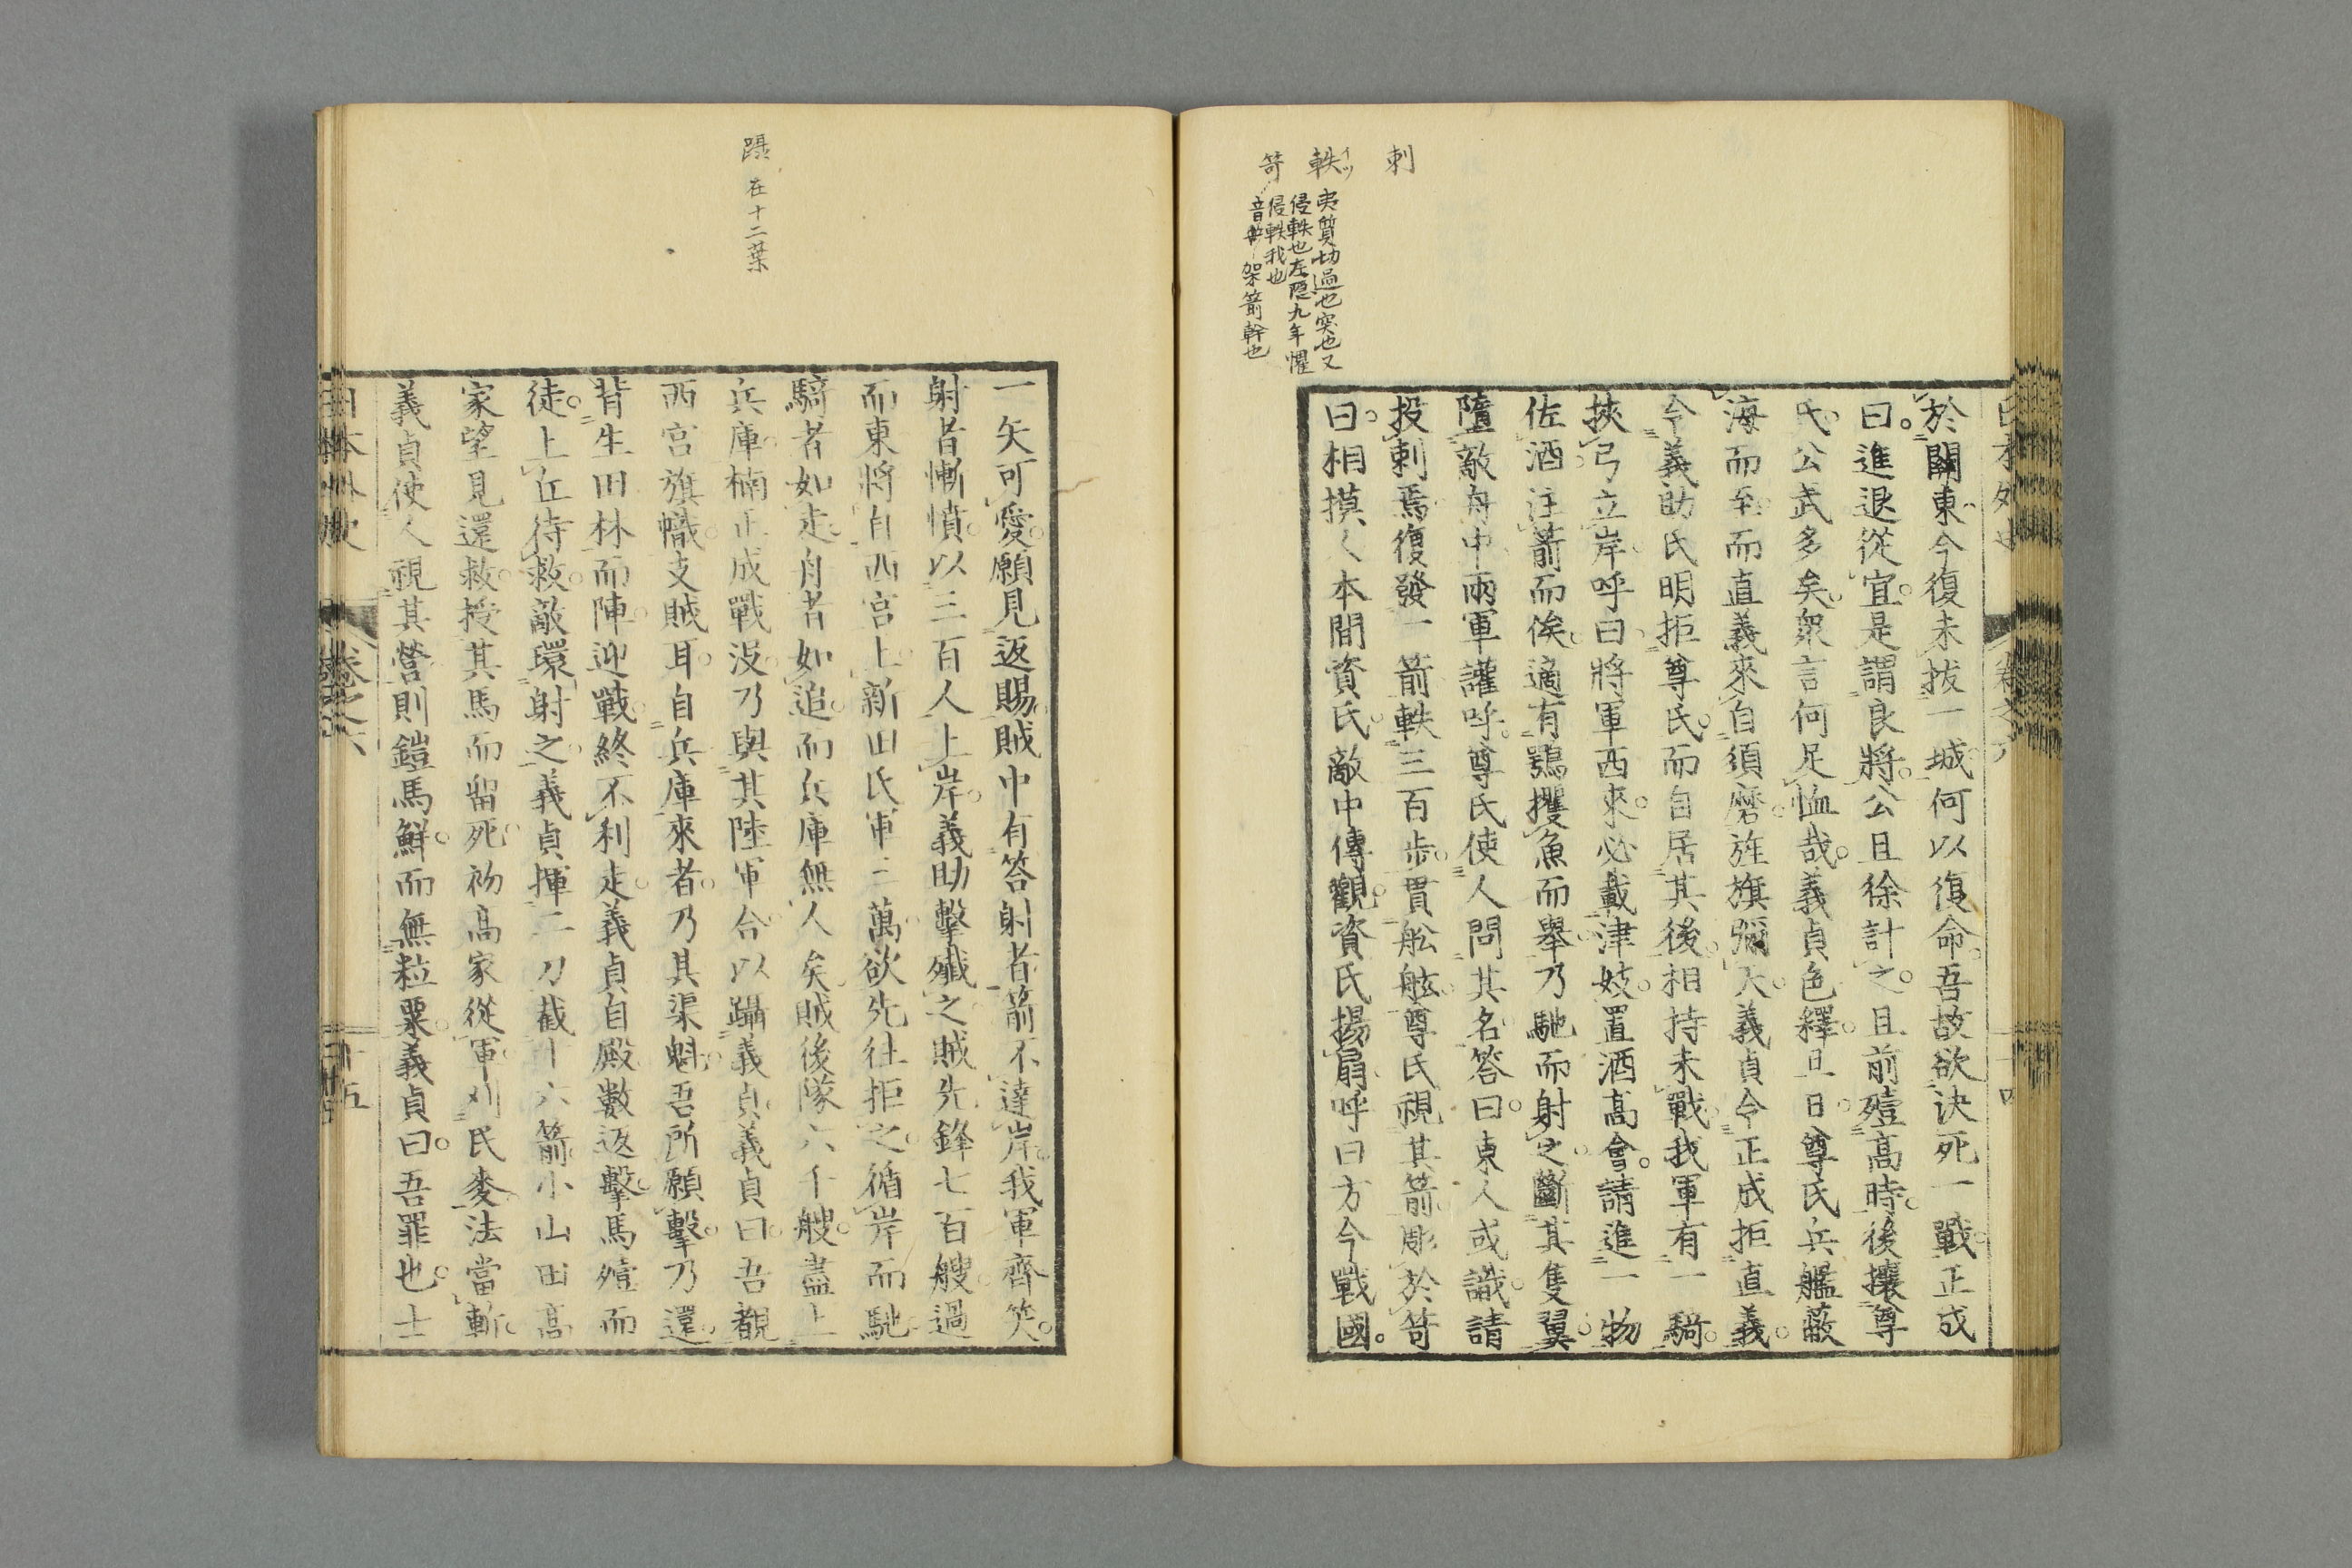 刺
軼イツ
夷質切過也突也又
侵軼也左隱九年懼
侵軼我也
笴
架箭幹也
於關東今復未拔一城何以復命吾故欲決死一戰正成
曰進退從宜是謂良將公且徐計之且前殪高時後攘尊
氏公武多矣衆言何足恤哉義貞色釋旦日尊氏兵艦蔽
海而至而直義來自須磨旌旗彌天義貞令正成拒直義
令義助氏明拒尊氏而自居其後相持未戰我軍有一騎
挾弓立岸呼曰將軍西來必載津妓置酒高會請進一物
佐酒注箭而俟適有鶚攫魚而舉乃馳而射之斷其隻翼
墮敵舟中兩軍讙呼尊氏使人問其名答曰東人或識請
投刺焉復發一箭軼三百步貫舩舷尊氏視其箭彫於笴
曰相摸人本間資氏敵中傳觀資氏揚扇呼曰方今戰國
蹑 在十二葉
一矢可愛願見返賜賊中有答射者箭不達岸我軍齊笑
射者慚憤以三百人上岸義助擊殲之賊先鋒七百艘過
而東將自西宮上新田氏軍三萬欲先往拒之循岸而馳
騎者如走舟者如追而兵庫無人矣賊後隊六千艘盡上
兵庫楠正成戰沒乃與其陸軍合以躡義貞義貞曰吾觀
西宮旗幟支賊耳自兵庫來者乃其渠魁吾所願擊乃還
背生田林而陣迎戰終不利走義貞自殿數返擊馬殪而
徒上丘待救敵環射之義貞揮二刀截十六箭小山田高
家望見還救授其馬而留死初高家從軍刈民麥法當斬
義貞使人視其營則鎧馬鮮而無粒粟義貞曰吾罪也士
日本外史
卷之六
二十五